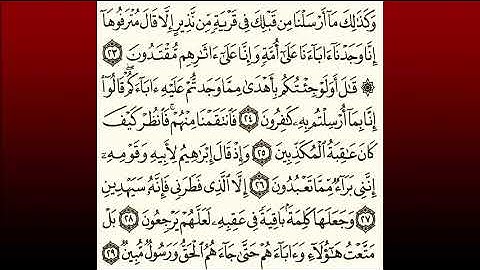 وَكَذَٰلِكَ مَآ أَرْسَلْنَا مِن قَبْلِكَ فِى قَرْيَةٍ مِّن نَّذِيرٍ إِلَّا قَالَ مُتْرَفُوهَآ
إِنَّا وَجَدْنَآ ءَابَآءَنَا عَلَىٰٓ أُمَّةٍ وَإِنَّا عَلَىٰٓ ءَاثَٰرِهِم مُّقْتَدُونَ ٢٣
۞ قَٰلَ أَوَلَوْ جِئْتُكُم بِأَهْدَىٰ مِمَّا وَجَدتُّمْ عَلَيْهِ ءَابَآءَكُمْ قَالُوٓا۟
إِنَّا بِمَآ أُرْسِلْتُم بِهِۦ كَٰفِرُونَ ٢٤ فَٱنتَقَمْنَا مِنْهُمْ فَٱنظُرْ كَيْفَ
كَانَ عَٰقِبَةُ ٱلْمُكَذِّبِينَ ٢٥ وَإِذْ قَالَ إِبْرَٰهِيمُ لِأَبِيهِ وَقَوْمِهِۦٓ
إِنَّنِى بَرَآءٌ مِّمَّا تَعْبُدُونَ ٢٦ إِلَّا ٱلَّذِى فَطَرَنِى فَإِنَّهُۥ سَيَهْدِينِ
٢٧ وَجَعَلَهَا كَلِمَةًۢ بَاقِيَةً فِى عَقِبِهِۦ لَعَلَّهُمْ يَرْجِعُونَ ٢٨ بَلْ
مَتَّعْتُ هَٰٓؤُلَآءِ وَءَابَآءَهُمْ حَتَّىٰ جَآءَهُمُ ٱلْحَقُّ وَرَسُولٌ مُّبِينٌ ٢٩